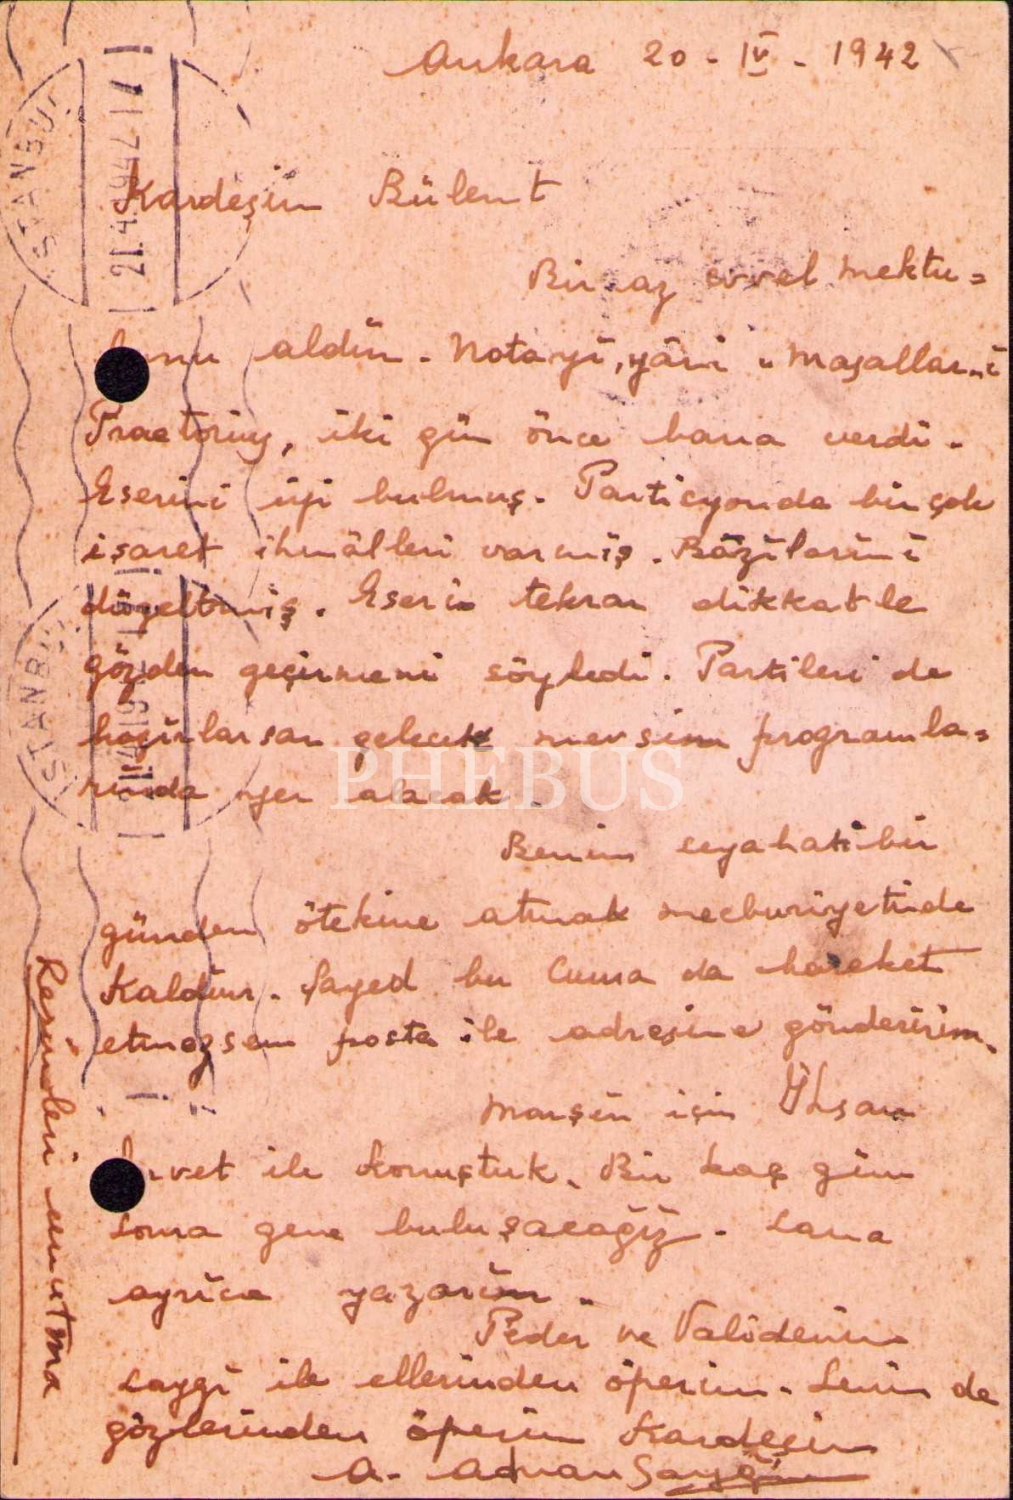 Ankara 20-IV-1942
Kardeşim Bülent
Biraz evvel mektu=
bunu aldım. Notayı, yâni "Masallar"ı
Praetorius, iki gün önce bana verdi.
Eserini iyi bulmuş. Partisyonda bir çok
işaret ihmâlleri varmış. Bâzılarını
düzeltmiş. Eseri tekrar dikkatle
gözden geçirmeni söyledi. Partileri de
hazırlarsan gelecek mevsim programla=
rında yer alacak.
Benim seyahati bir
günden ötekine atmak mecburiyetinde
kaldım. Şayed bu Cuma da hareket
etmezsem posta ile adresine gönderirim.
Marşın için İhsan
ile konuştuk. Bir kaç gün
sonra gene buluşacağız. Sana
ayrıca yazarım.
Peder ve Validenin
saygı ile ellerinden öperim. Senin de
gözlerinden öperim Kardeşin
A. Adnan Saygun
Resimleri unutma
İSTANBUL
21.4.1942 17
İSTANBUL
PHEBUS